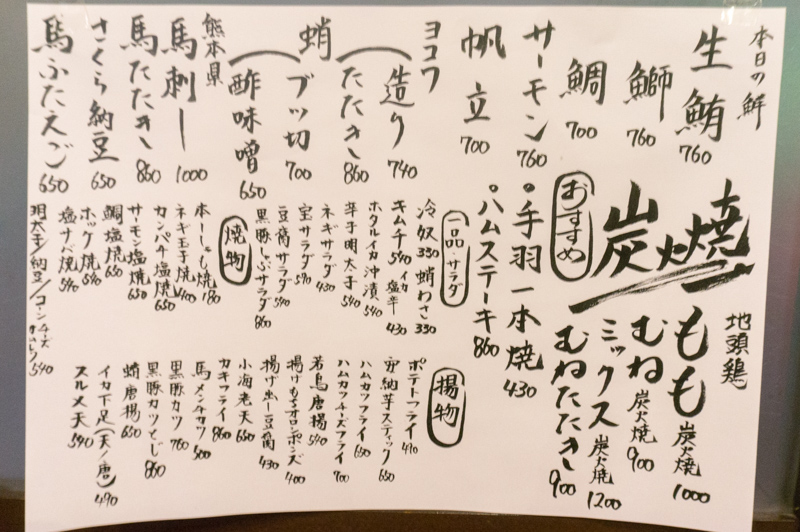 本日の鮮
生鮪 760
鰤 760
鯛 700
サーモン 760
帆立 700
ヨコワ
造り 740
たたき 860
蛸
ブッ切 700
酢味噌 650
熊本県
馬刺し 1000
馬たたき 860
さくら納豆 650
馬ふたえご 650
炭火焼
地頭鶏
もも炭火焼 1000
むね炭火焼 900
ミックス炭火焼 1200
むねたたき 900
おすすめ
・手羽一本焼 430
・ハムステーキ 860
一品・サラダ
冷奴 330 蛸わさ 330
キムチ 540 イカ塩辛 430
ホタルイカ沖漬 540
辛子明太子 540
ネギサラダ 430
宝サラダ 590
豆腐サラダ 540
黒豚しゃぶサラダ 860
焼物
本ししゃも焼 180
ネギ玉子焼 400
カンパチ塩焼 650
サーモン塩焼 650
鯛塩焼 650
ホッケ焼 540
塩サバ焼 540
明太子/納豆/コーンチーズオムレツ 540
揚物
ポテトフライ 490
安納芋スティック 650
ハムカツフライ 650
ハムカツチーズフライ 700
若鳥唐揚 540
揚げもちオロシポンズ 400
揚げ出し豆腐 430
小海老天 650
カキフライ 860
馬メンチカツ 500
黒豚カツ 760
黒豚カツとじ 860
蛸唐揚 650
イカ下足(天/唐) 490
スルメ天 540